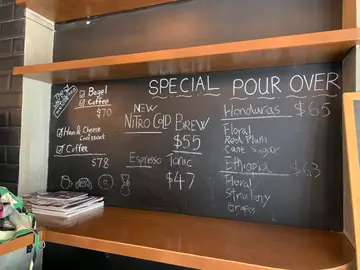 Bagel
Coffee
$70
Ham & Cheese
Croissant
Coffee
$78
SPECIAL POUR OVER
NEW
NITRO COLD BREW
$55
Espresso Tonic
$47
Honduras $65
Floral
Red Plum
Cane Sugar
Ethiopia $63
Floral
Strawberry
Grapes